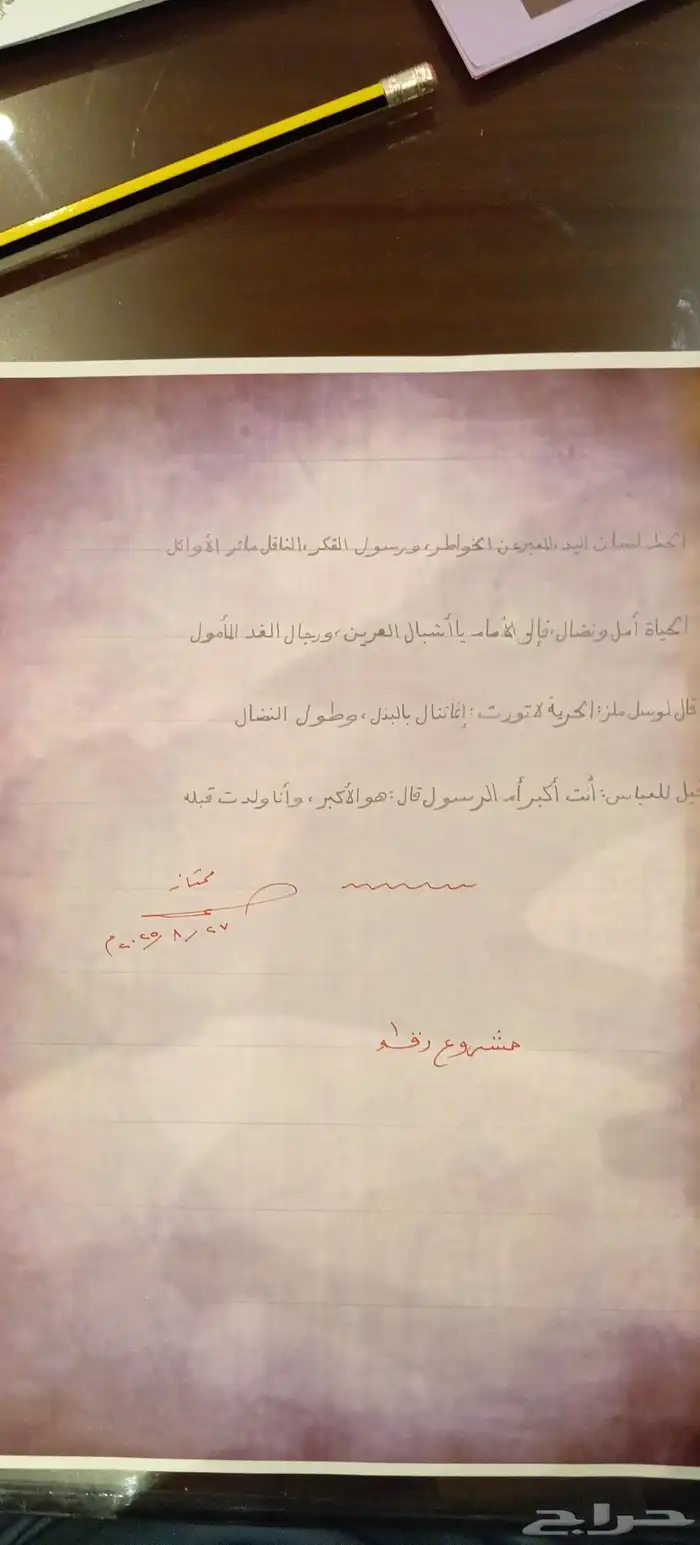 الخط لسان اليد، المعبر عن الخواطر، ورسول الفكر، الناقل مآثر الأوائل
الحياة أمل ونضال، فإلى الأمام يا أشبال العرين، ورجال الغد المأمول
قال لوسل ملز: الحرية لا تورث؛ إنما تنال بالبذل، وطول النضال
قيل للعباس: أنت أكبر أم الرسول قال: هو الأكبر، وأنا ولدت قبله
ممتاز
٢٧/٨/٢٠٢٥م
مشروع
حراج